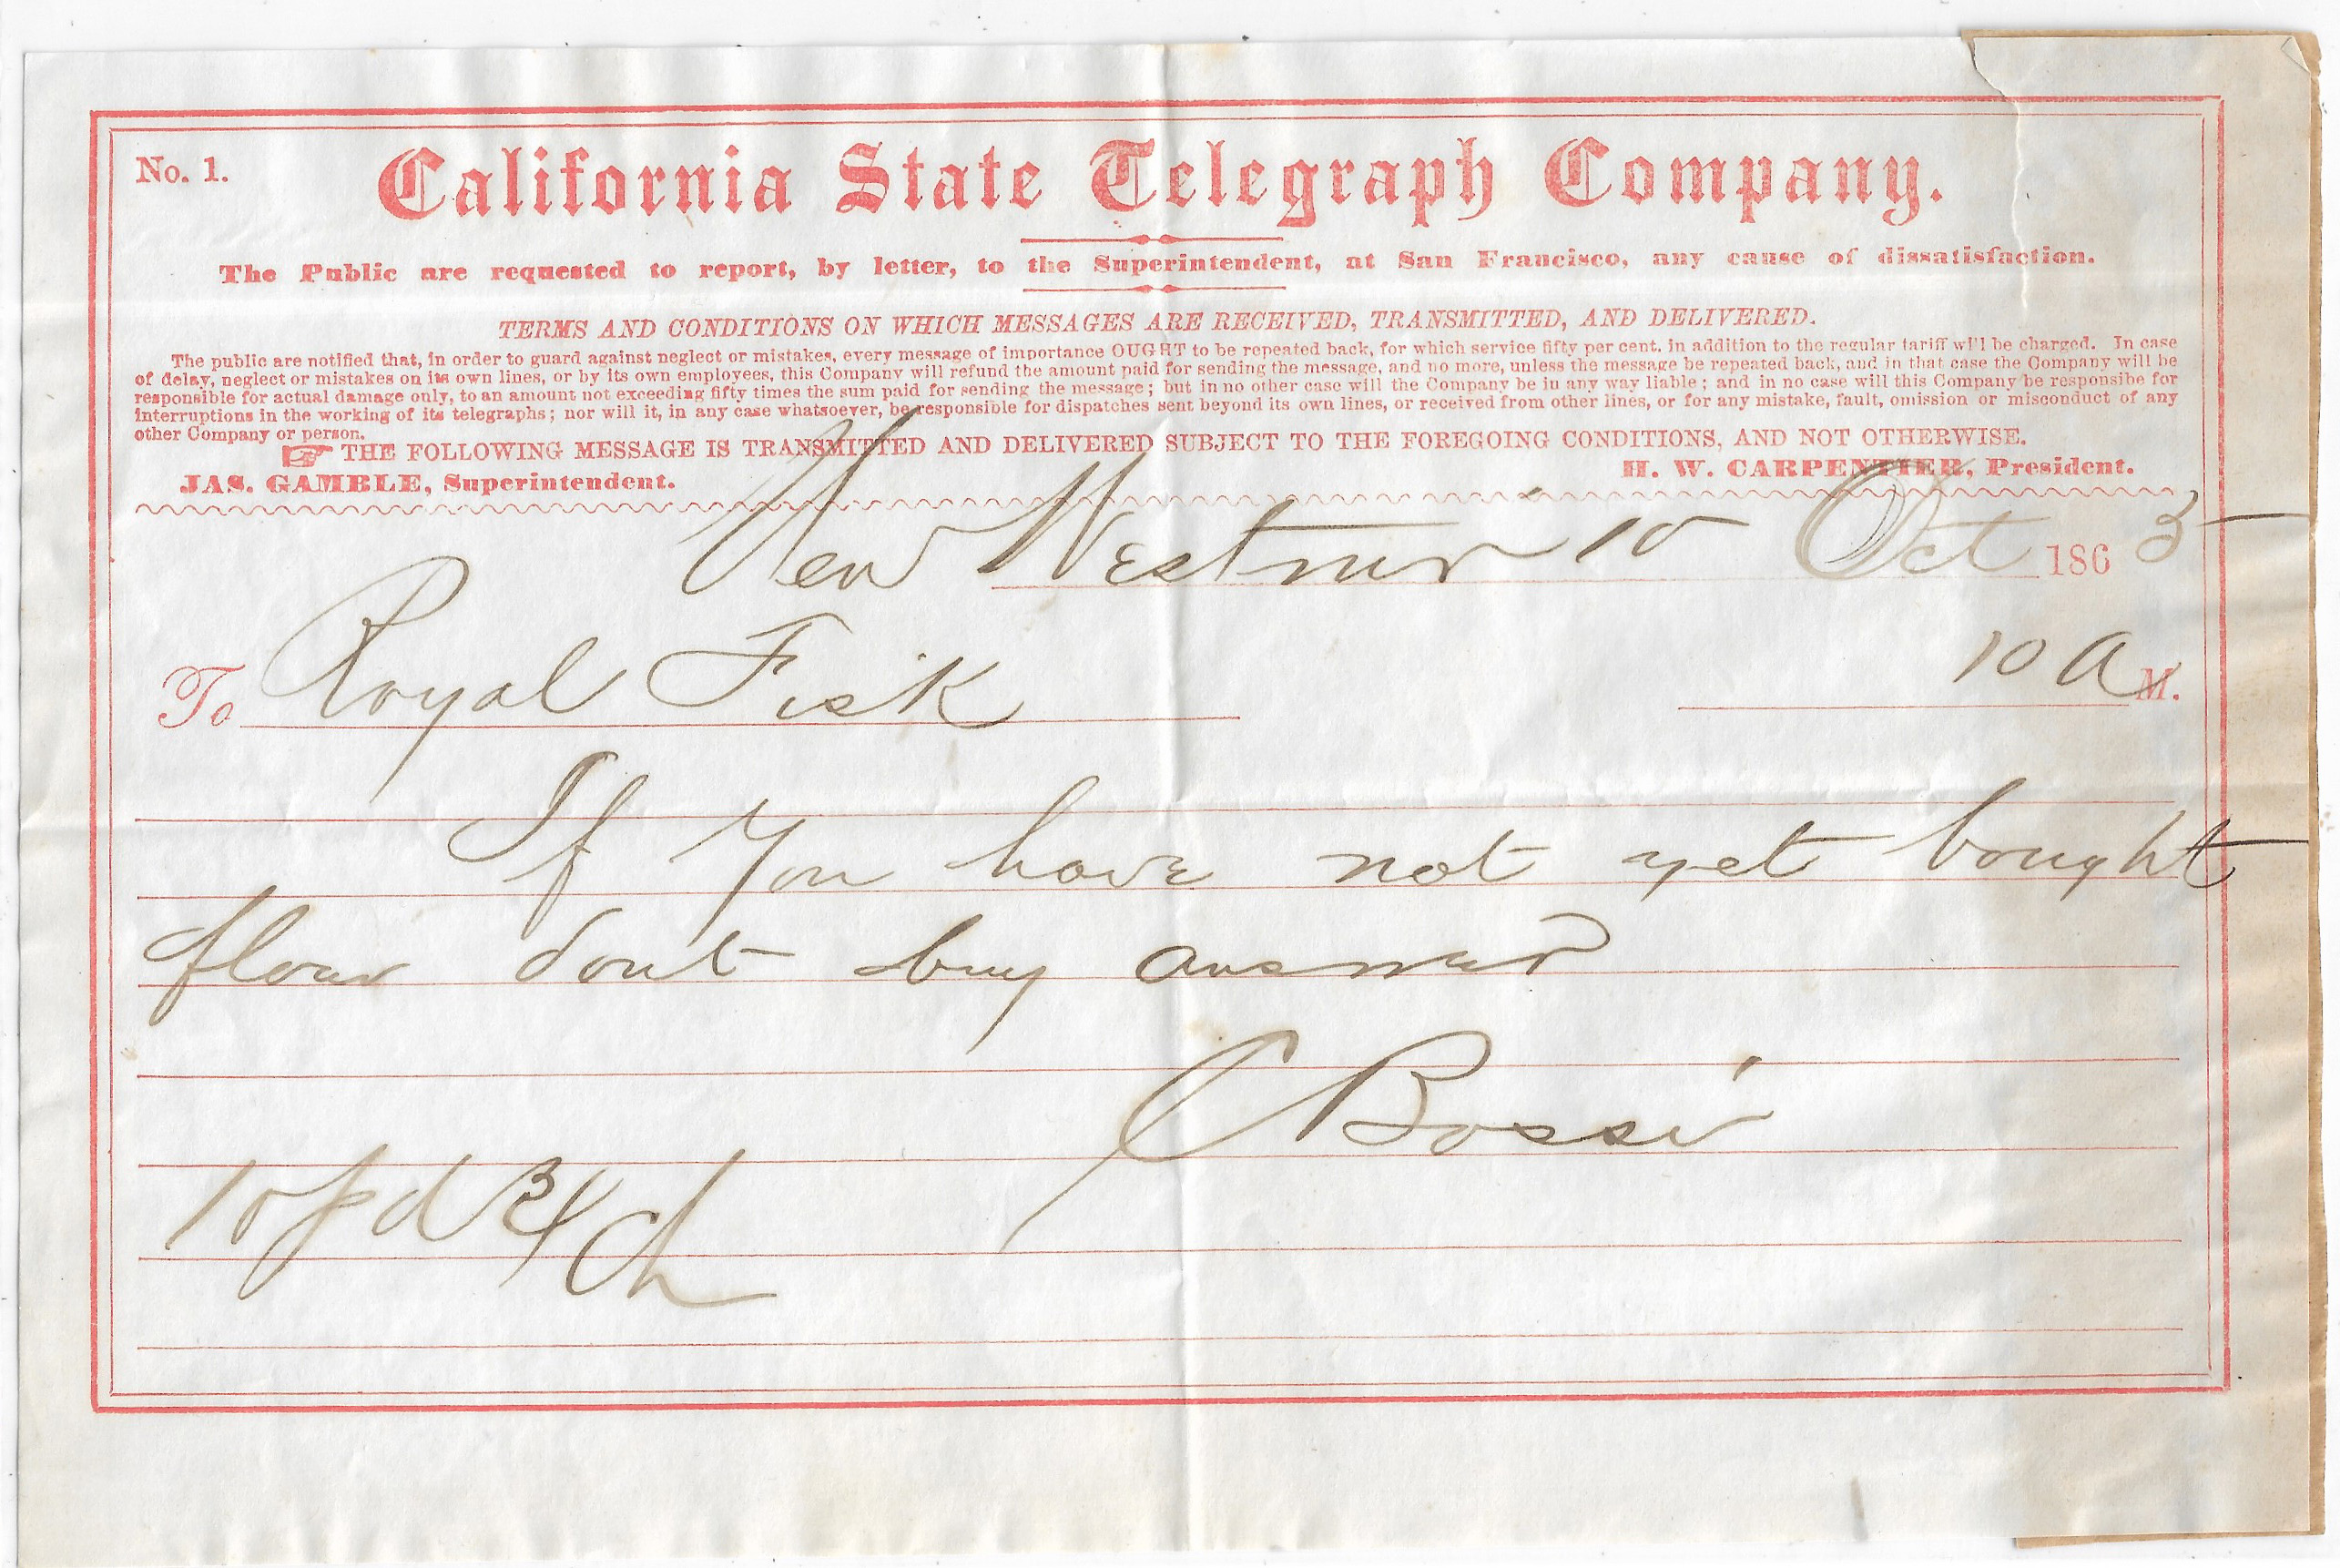 No. 1.
California State Telegraph Company.
The Public are requested to report, by letter, to the Superintendent, at San Francisco, any cause of dissatisfaction.
TERMS AND CONDITIONS ON WHICH MESSAGES ARE RECEIVED, TRANSMITTED, AND DELIVERED.
The public are notified that, in order to guard against neglect or mistakes, every message of importance OUGHT to be repeated back, for which service fifty per cent. in addition to the regular tariff will be charged. In case
of delay, neglect or mistakes on its own lines, or by its own employees, this Company will refund the amount paid for sending the message, and no more, unless the message be repeated back, and in that case the Company will be
responsible for actual damage only, to an amount not exceeding fifty times the sum paid for sending the message; but in no other case will the Company be in any way liable; and in no case will this Company be responsibe for
interruptions in the working of its telegraphs; nor will it, in any case whatsoever, be responsible for dispatches sent beyond its own lines, or received from other lines, or for any mistake, fault, omission or misconduct of any
other Company or person.
THE FOLLOWING MESSAGE IS TRANSMITTED AND DELIVERED SUBJECT TO THE FOREGOING CONDITIONS, AND NOT OTHERWISE.
JAS. GAMBLE, Superintendent. H. W. CARPENTIER, President.
New Westmr 10 Oct 1865
To Royal Fisk 10 a M.
If you have not yet bought
flour dont buy answer
C Bossi
10 pd ch